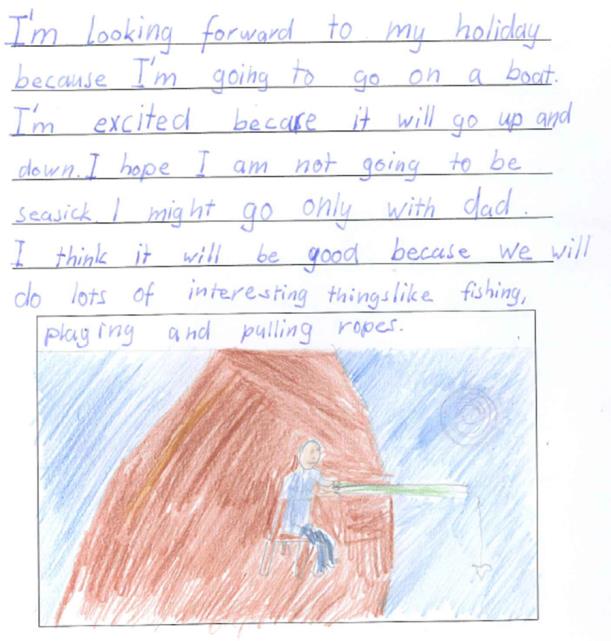 I'm looking forward to my holiday
because I'm going to go on a boat.
I'm excited becare it will go up and
down. I hope I am not going to be
seasick. I might go only with dad.
I think it will be good becase we will
do lots of interesting thingslike fishing,
playing and pulling ropes.